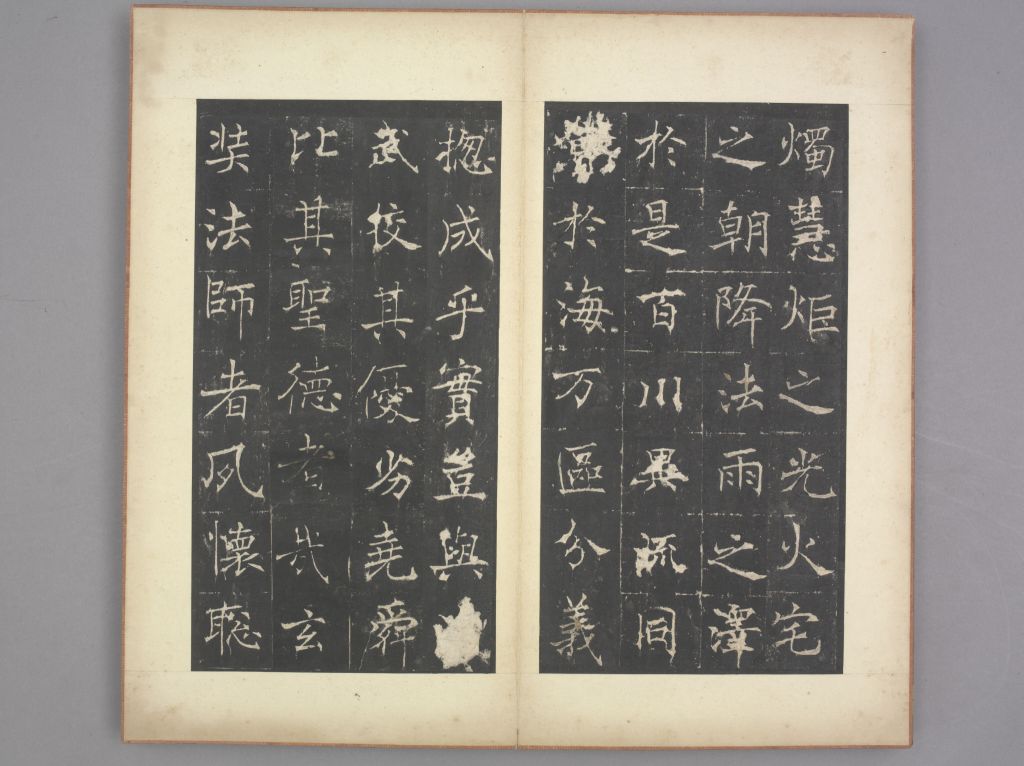 燭慧炬之光火宅
之朝降法雨之澤
於是百川異流同
於海万區分義
揔成乎實豈與
武校其優劣堯舜
比其聖德者哉玄
奘法師者夙懷聡